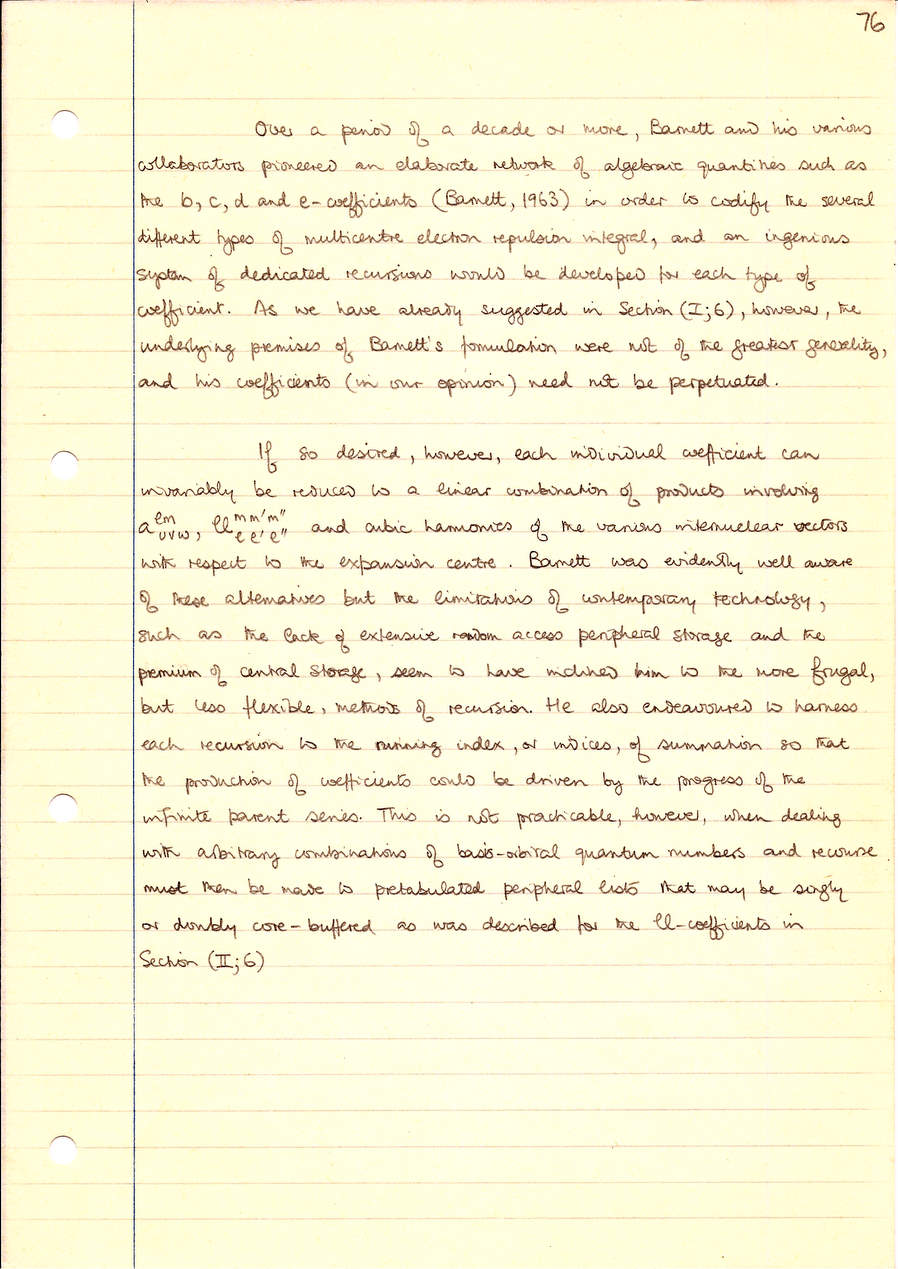 76
Over a period of a decade or more, Barnett and his various
collaborators pioneered an elaborate network of algebraic quantities such as
the b, c, d and e-coefficients (Barnett, 1963) in order to codify the several
different types of multicentre electron repulsion integral, and an ingenious
system of dedicated recursions would be developed for each type of
coefficient. As we have already suggested in Section (I;6), however, the
underlying premises of Barnett's formulation were not of the greatest generality,
and his coefficients (in our opinion) need not be perpetuated.
If so desired, however, each individual coefficient can
invariably be reduced to a linear combination of products involving
a^{lm}_{uvw}, U^{m m' m''}_{l l' l''} and cubic harmonics of the various internuclear vectors
with respect to the expansion centre. Barnett was evidently well aware
of these alternatives but the limitations of contemporary technology,
such as the lack of extensive random access peripheral storage and the
premium of central storage, seem to have inclined him to the more frugal,
but less flexible, methods of recursion. He also endeavoured to harness
each recursion to the running index, or indices, of summation so that
the production of coefficients could be driven by the progress of the
infinite parent series. This is not practicable, however, when dealing
with arbitrary combinations of basis-orbital quantum numbers and recourse
must then be made to pretabulated peripheral lists that may be singly
or doubly core-buffered as was described for the U-coefficients in
Section (II;6)